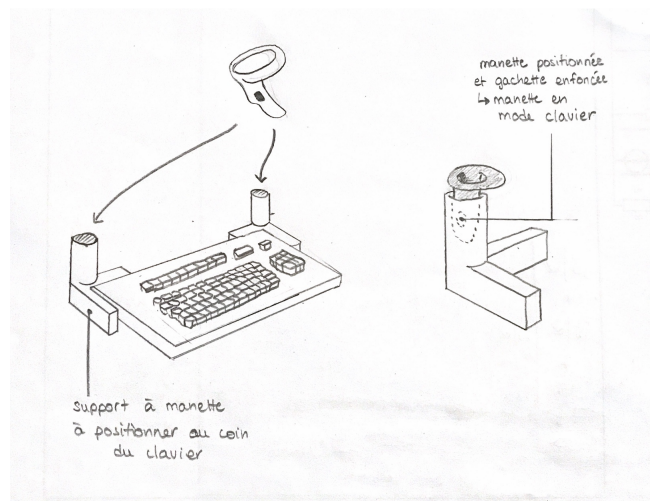 manette positionnée
et gachette enfoncée
↳ manette en
mode clavier
support à manette
à positionner au coin
du clavier